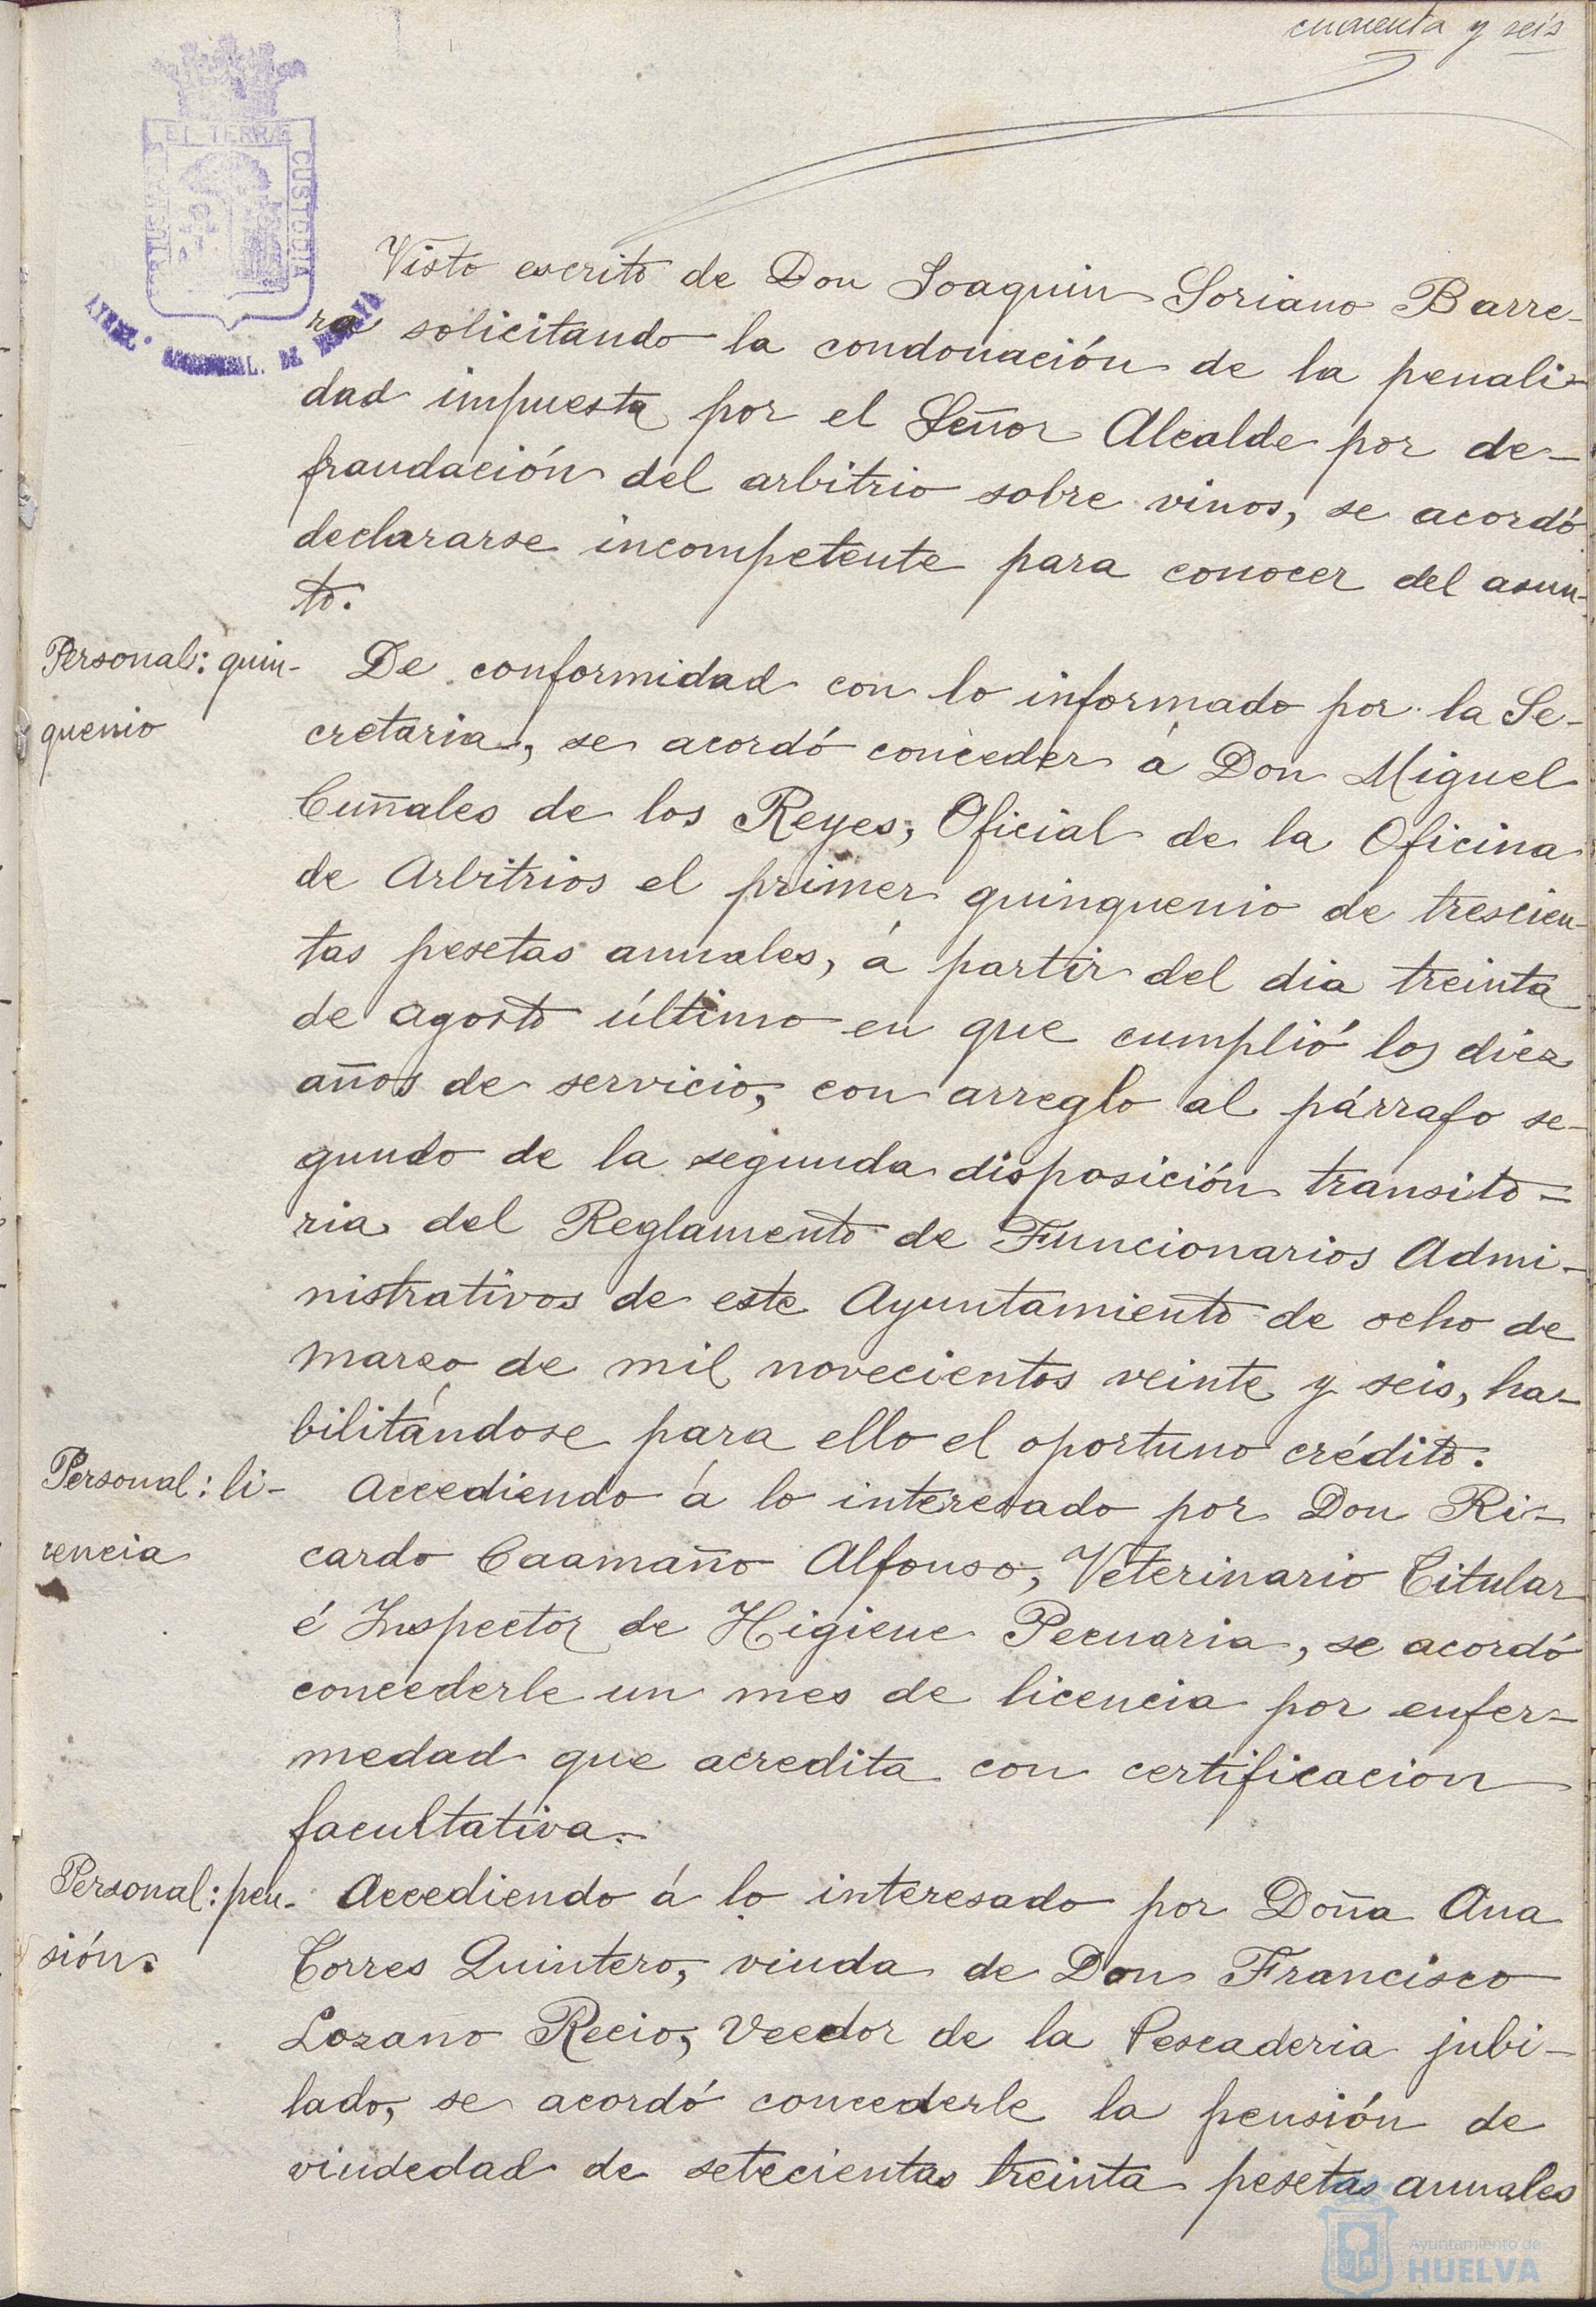 cincuenta y seis
ET TERRAE
CUSTODIA
Visto escrito de Don Joaquin Soriano Barre-
ra solicitando la condonación de la penali-
dad impuesta por el Señor Alcalde por de-
fraudación del arbitrio sobre vinos, se acordó
declararse incompetente para conocer del asun-
to.
Personal: quin-
quenio
De conformidad con lo informado por la Se-
cretaria, se acordó conceder á Don Miguel
Cuñales de los Reyes, Oficial de la Oficina
de Arbitrios el primer quinquenio de trescien-
tas pesetas anuales, á partir del dia treinta
de agosto último en que cumplió los diez
años de servicio, con arreglo al párrafo se-
gundo de la segunda disposición transito-
ria del Reglamento de Funcionarios Admi-
nistrativos de este Ayuntamiento de ocho de
marzo de mil novecientos veinte y seis, ha-
bilitándose para ello el oportuno crédito.
Personal: li-
cencia
Accediendo á lo interesado por Don Ri-
cardo Caamaño Alfonso, Veterinario Titular
é Inspector de Higiene Pecuaria, se acordó
concederle un mes de licencia por enfer-
medad que acredita con certificacion
facultativa.
Personal: pen-
sión.
Accediendo á lo interesado por Doña Ana
Torres Quintero, viuda de Don Francisco
Lozano Recio, Veedor de la Pescaderia jubi-
lado, se acordó concederle la pensión de
viudedad de setecientas treinta pesetas anuales
Ayuntamiento de
HUELVA